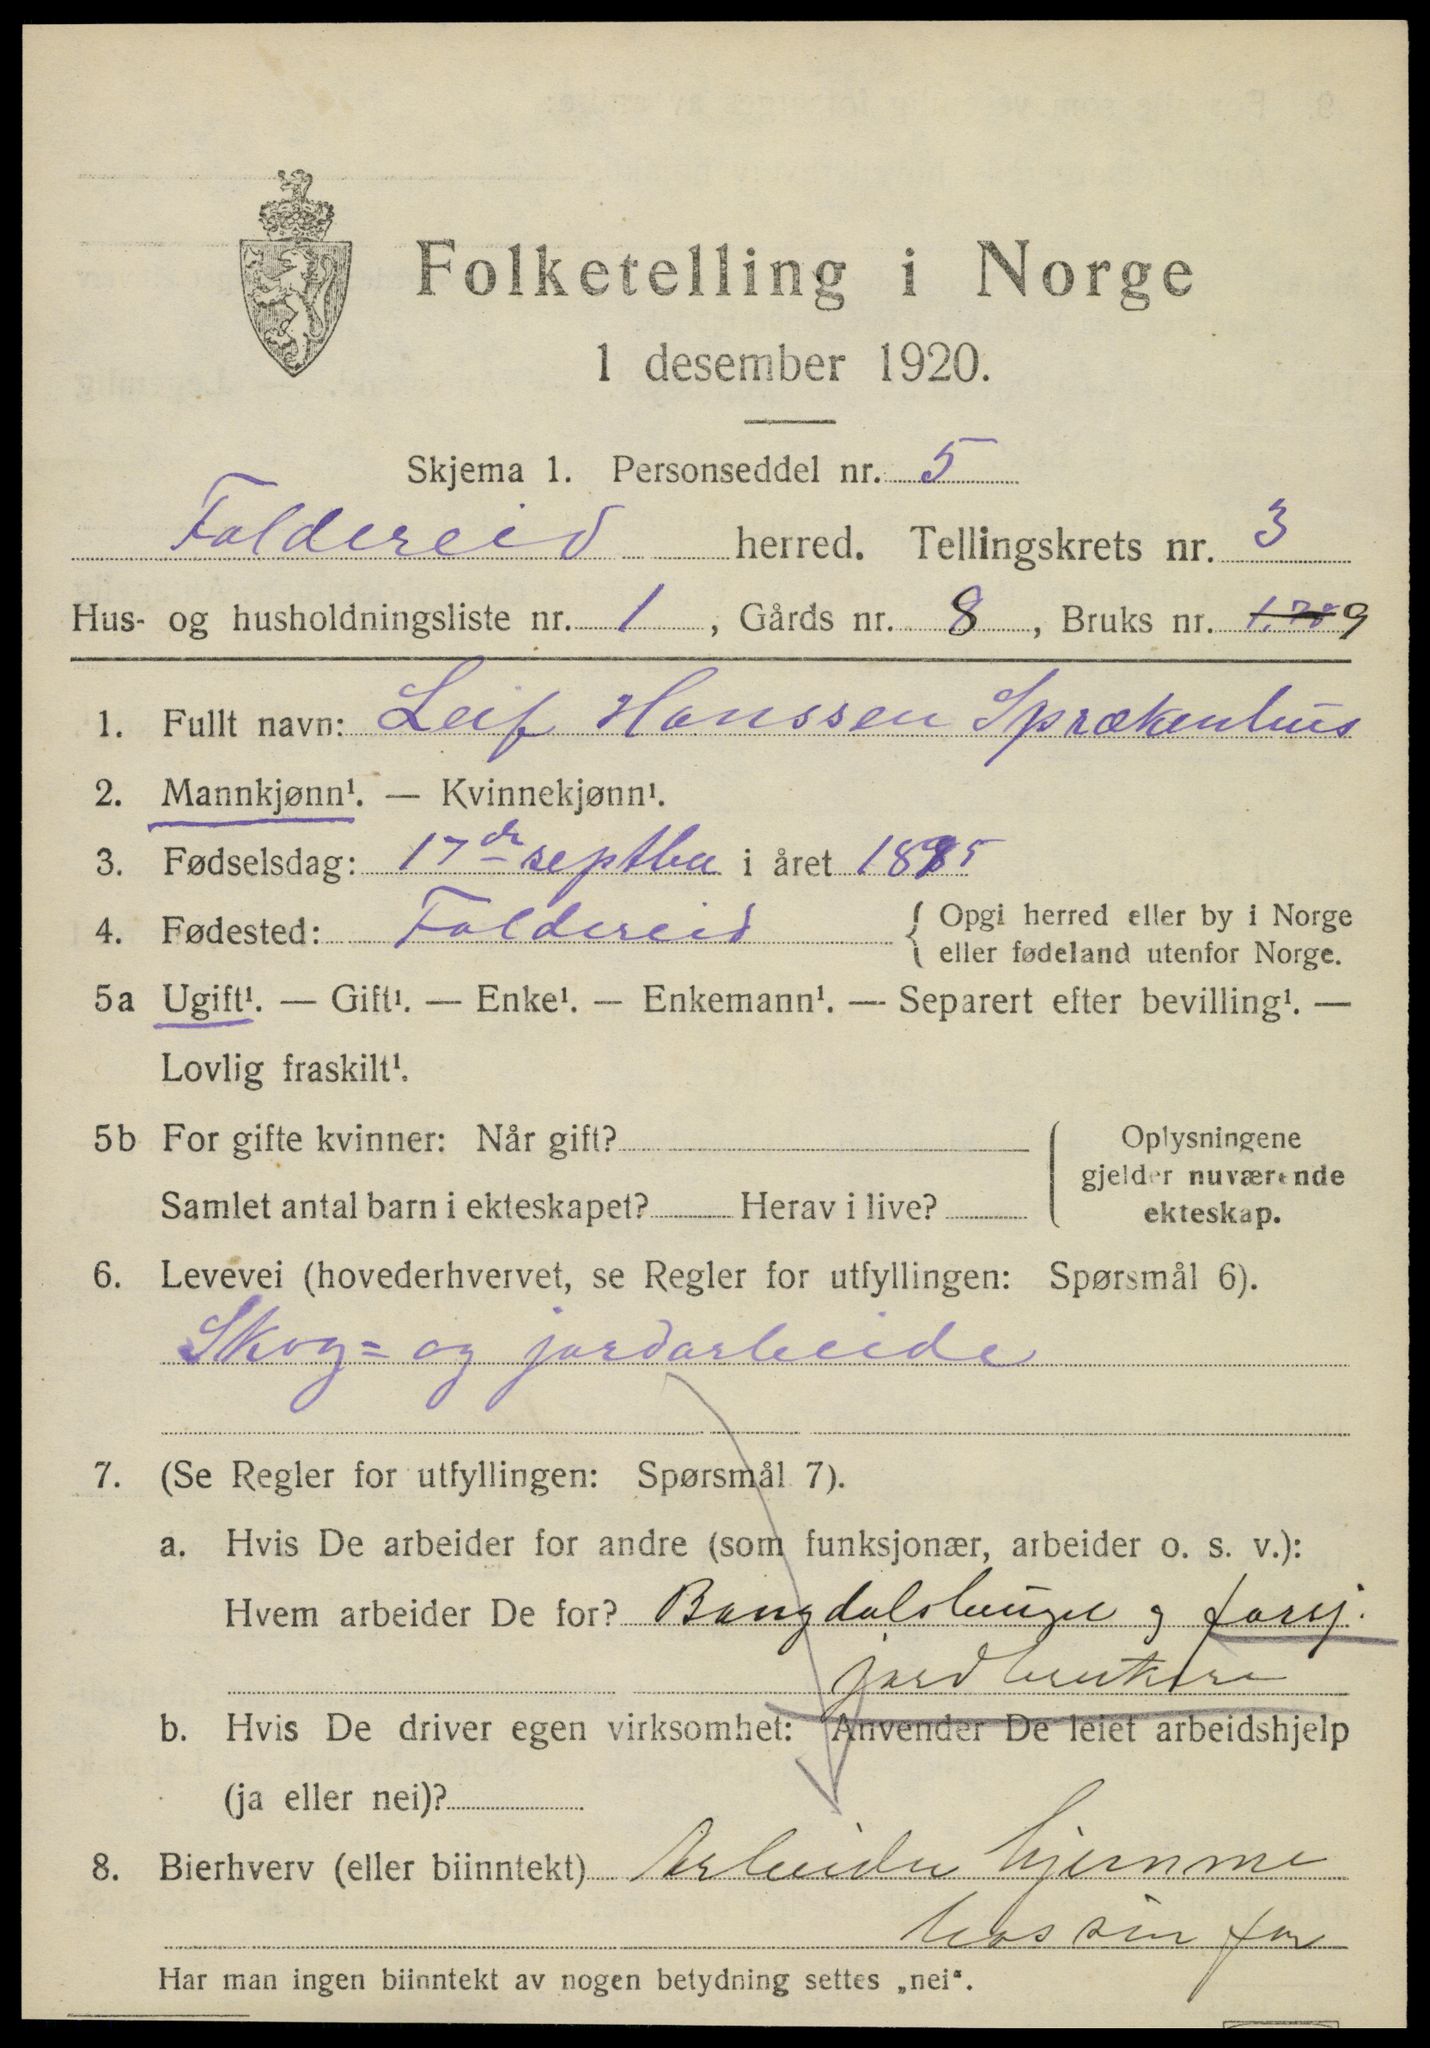 Folketelling i Norge
1 desember 1920.
Skjema 1. Personseddel nr. 5
Foldereid herred. Tellingskrets nr. 3
Hus- og husholdningsliste nr. 1, Gårds nr. 8, Bruks nr. 9
1. Fullt navn: Leif Hanssen Sprækenhus
2. Mannkjønn¹. — Kvinnekjønn¹.
3. Fødselsdag: 17de septbr i året 1895
4. Fødested: Foldereid { Opgi herred eller by i Norge
eller fødeland utenfor Norge.
5a Ugift¹. — Gift¹. — Enke¹. — Enkemann¹. — Separert efter bevilling¹. —
Lovlig fraskilt¹.
5b For gifte kvinner: Når gift? Oplysningene
gjelder nuværende
Samlet antal barn i ekteskapet? Herav i live? ekteskap.
6. Levevei (hovederhvervet, se Regler for utfyllingen: Spørsmål 6).
Skog- og jordarbeide
7. (Se Regler for utfyllingen: Spørsmål 7).
a. Hvis De arbeider for andre (som funksjonær, arbeider o. s. v.):
Hvem arbeider De for? og forsj.
jordbrukere
b. Hvis De driver egen virksomhet: Anvender De leiet arbeidshjelp
(ja eller nei)?
8. Bierhverv (eller biinntekt) Arbeider hjemme
hos sin far
Har man ingen biinntekt av nogen betydning settes „nei“.